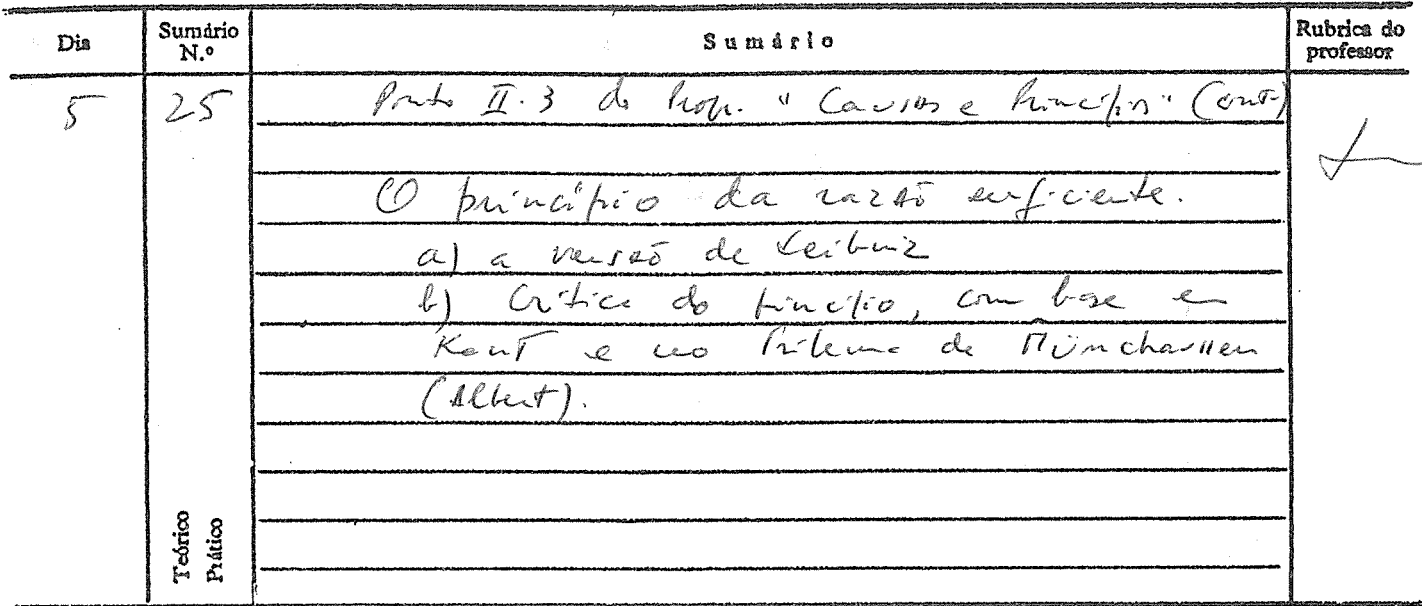 Dia
Sumário N.º
Sumário
Rubrica do professor
5
25
Ponto II.3 do Prog. "Causas e Princípios" (Cont.)
O princípio da razão suficiente.
a) a versão de Leibniz
b) Crítica do princípio, com base em
Kant e no Trilema de Münchaussen
(Albert).
Teórico
Prático